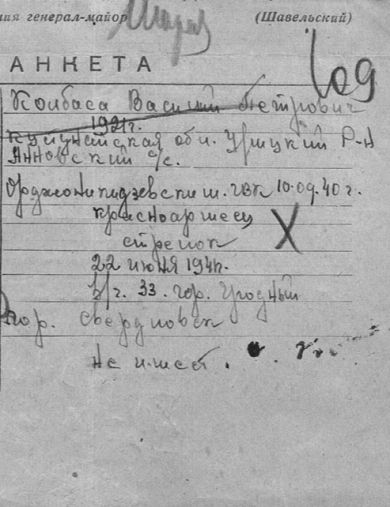 ния генерал-майор (Шавельский)
АНКЕТА
Колбаса Василий Петрович
1921г.
ская обл. Урицкий Р-Н
Анновский с/с.
Орджоникидзевский. ГВК 10.09.40 г.
красноармеец
стрелок
22 июня 1941г.
в/г. 33. гор. Угодный
гор. Свердловск
Не имеет.